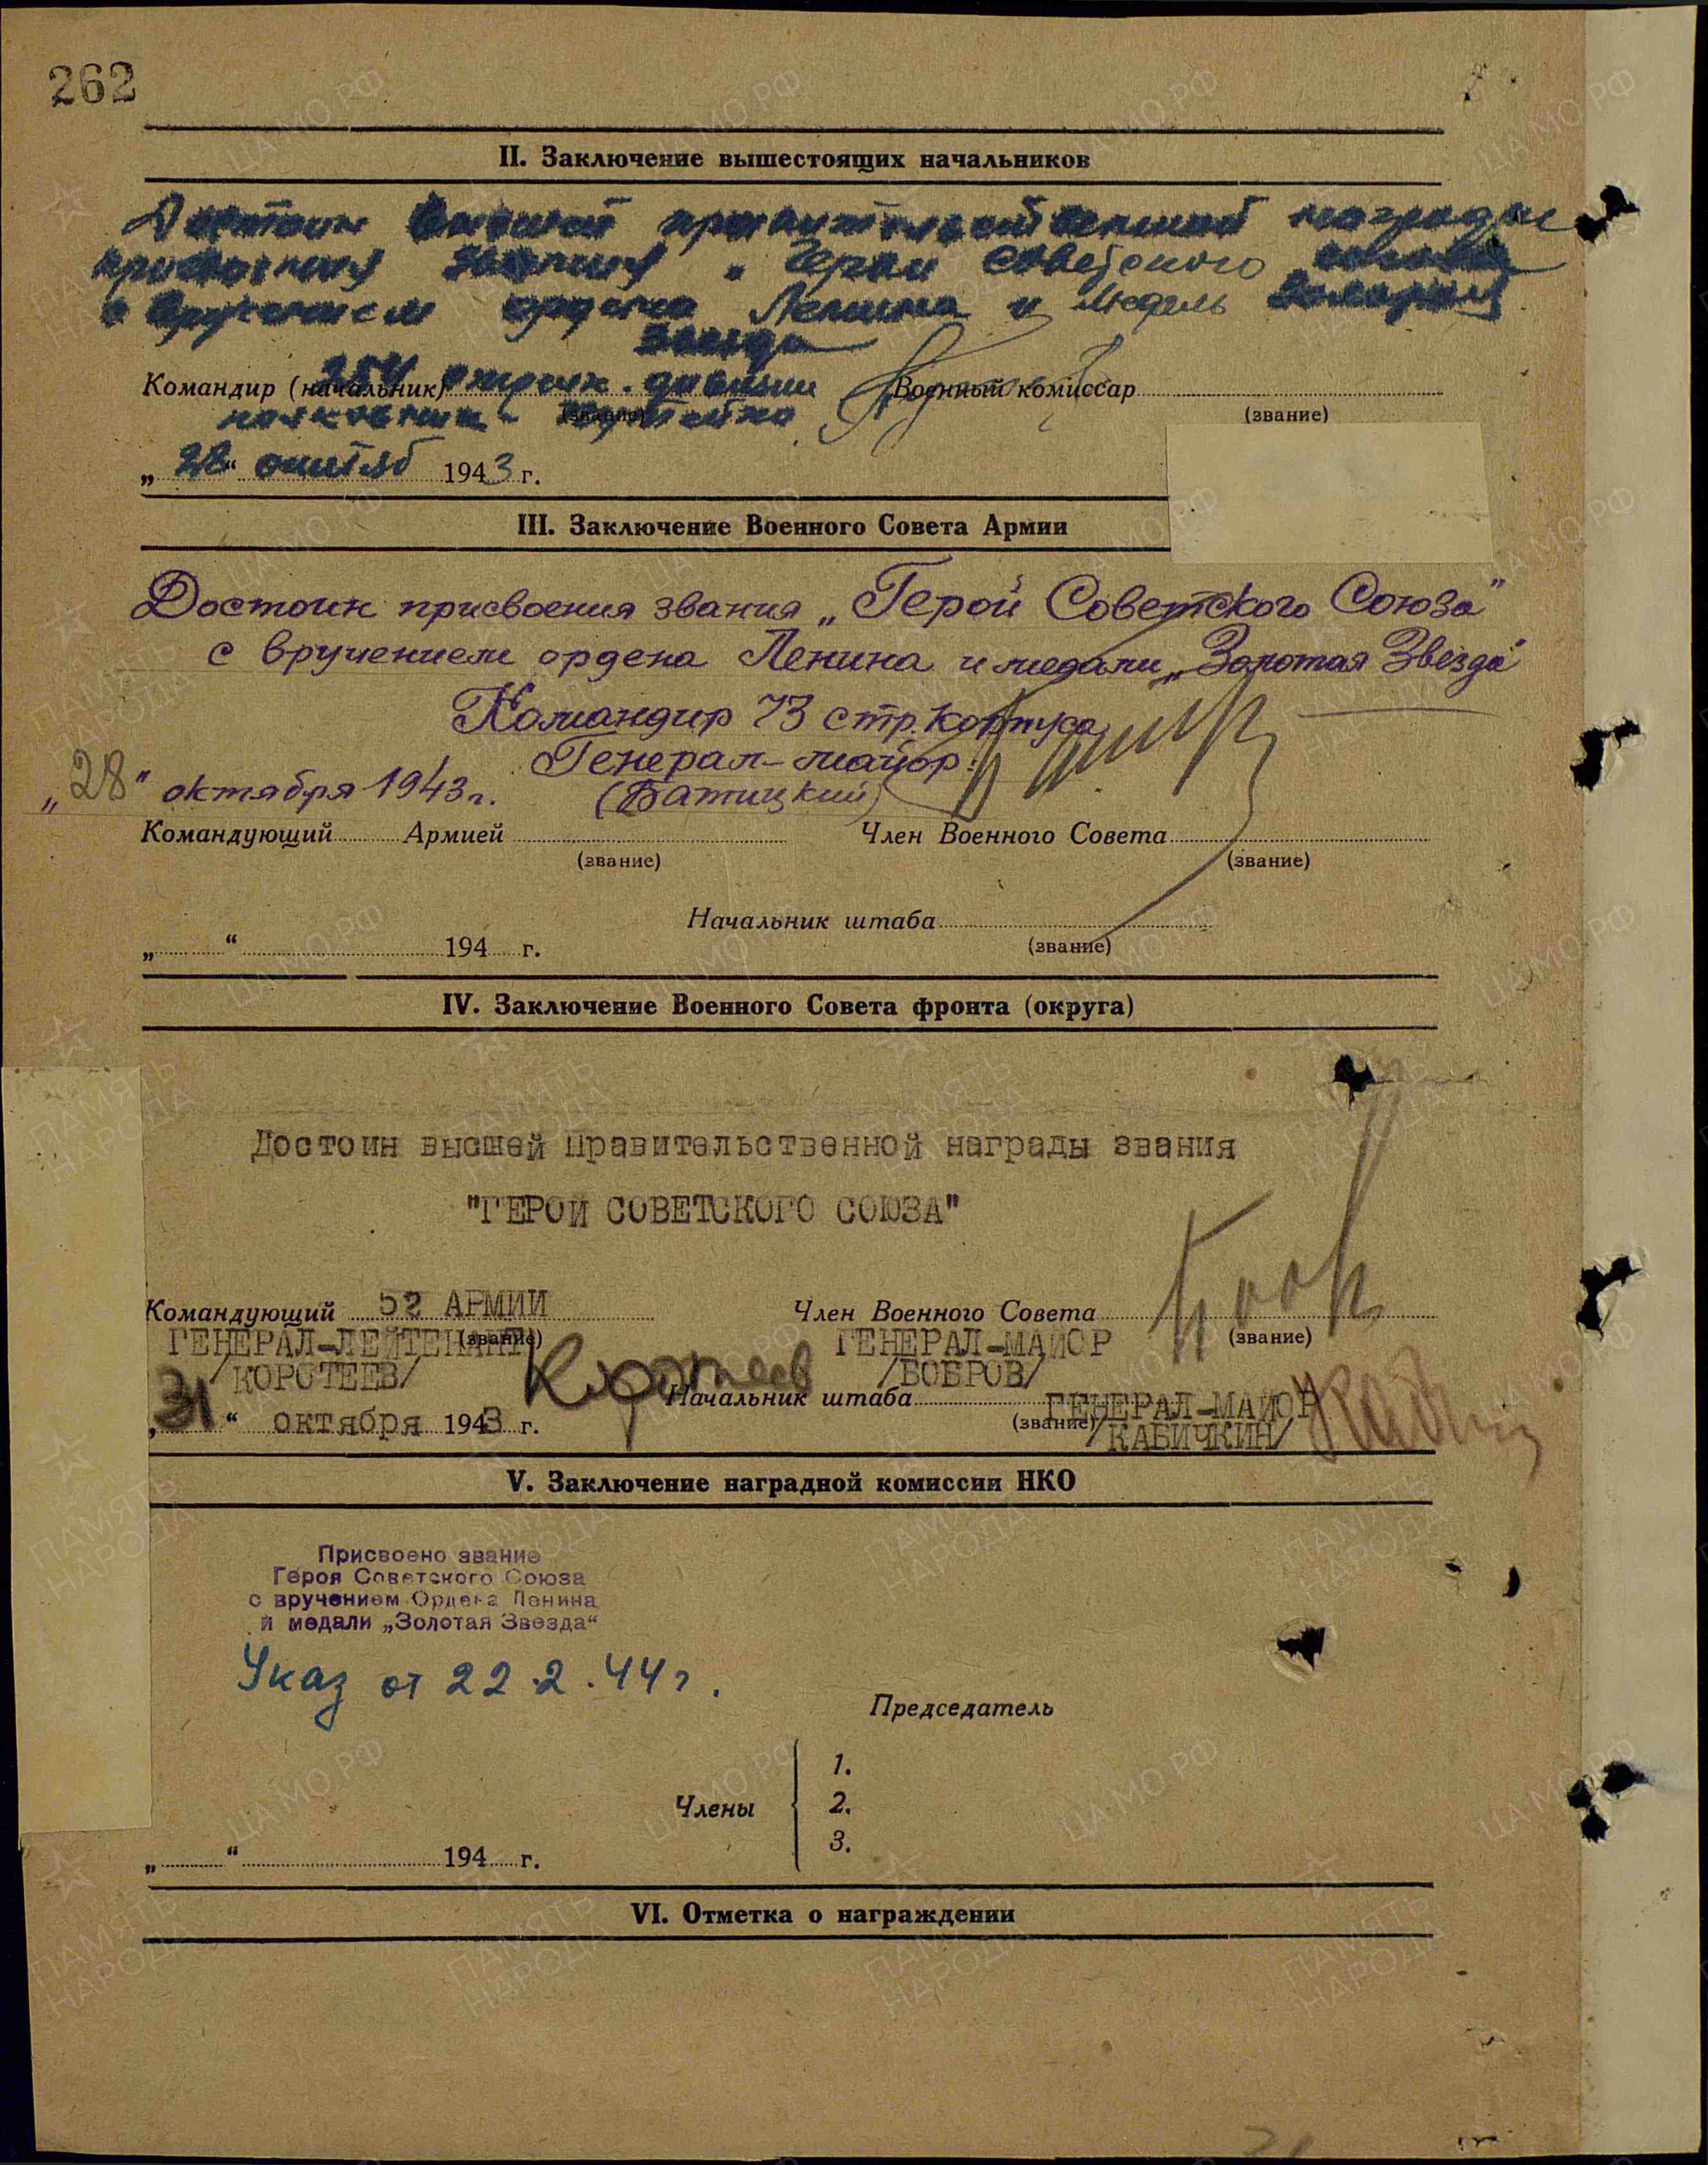 262
II. Заключение вышестоящих начальников
Достоин высшей правительственной награды
присвоению звания „Герой Советского Союза
с вручением ордена Ленина и медаль Золотая
Звезда
Командир (начальник) 254 стрелк. дивизии Военный комиссар
(звание) (звание)
полковник
„28“ октяб 1943 г.
III. Заключение Военного Совета Армии
Достоин присвоения звания „Герой Советского Союза"
с вручением ордена Ленина и медали „Золотая Звезда"
Командир 73 стр. корпуса
Генерал-майор:
„28" октября 1943 г. (Батицкий)
Командующий Армией Член Военного Совета
(звание) (звание)
Начальник штаба
„ “ 194 г. (звание)
IV. Заключение Военного Совета фронта (округа)
Достоин высшей правительственной награды звания
"ГЕРОЙ СОВЕТСКОГО СОЮЗА"
Командующий 52 АРМИИ Член Военного Совета
ГЕНЕРАЛ-ЛЕЙТЕНАНТ (звание) ГЕНЕРАЛ-МАЙОР (звание)
/КОРОТЕЕВ/ Коротеев /БОБРОВ/
Начальник штаба ГЕНЕРАЛ-МАЙОР
„31“ октября 1943 г. (звание) /КАБИЧКИН/
V. Заключение наградной комиссии НКО
Присвоено звание
Героя Советского Союза
с вручением Ордена Ленина
и медали „Золотая Звезда“
Указ от 22.2.44 г.
Председатель
1.
Члены 2.
3.
„ “ 194 г.
VI. Отметка о награждении
ПАМЯТЬ НАРОДА
ЦАМО.РФ